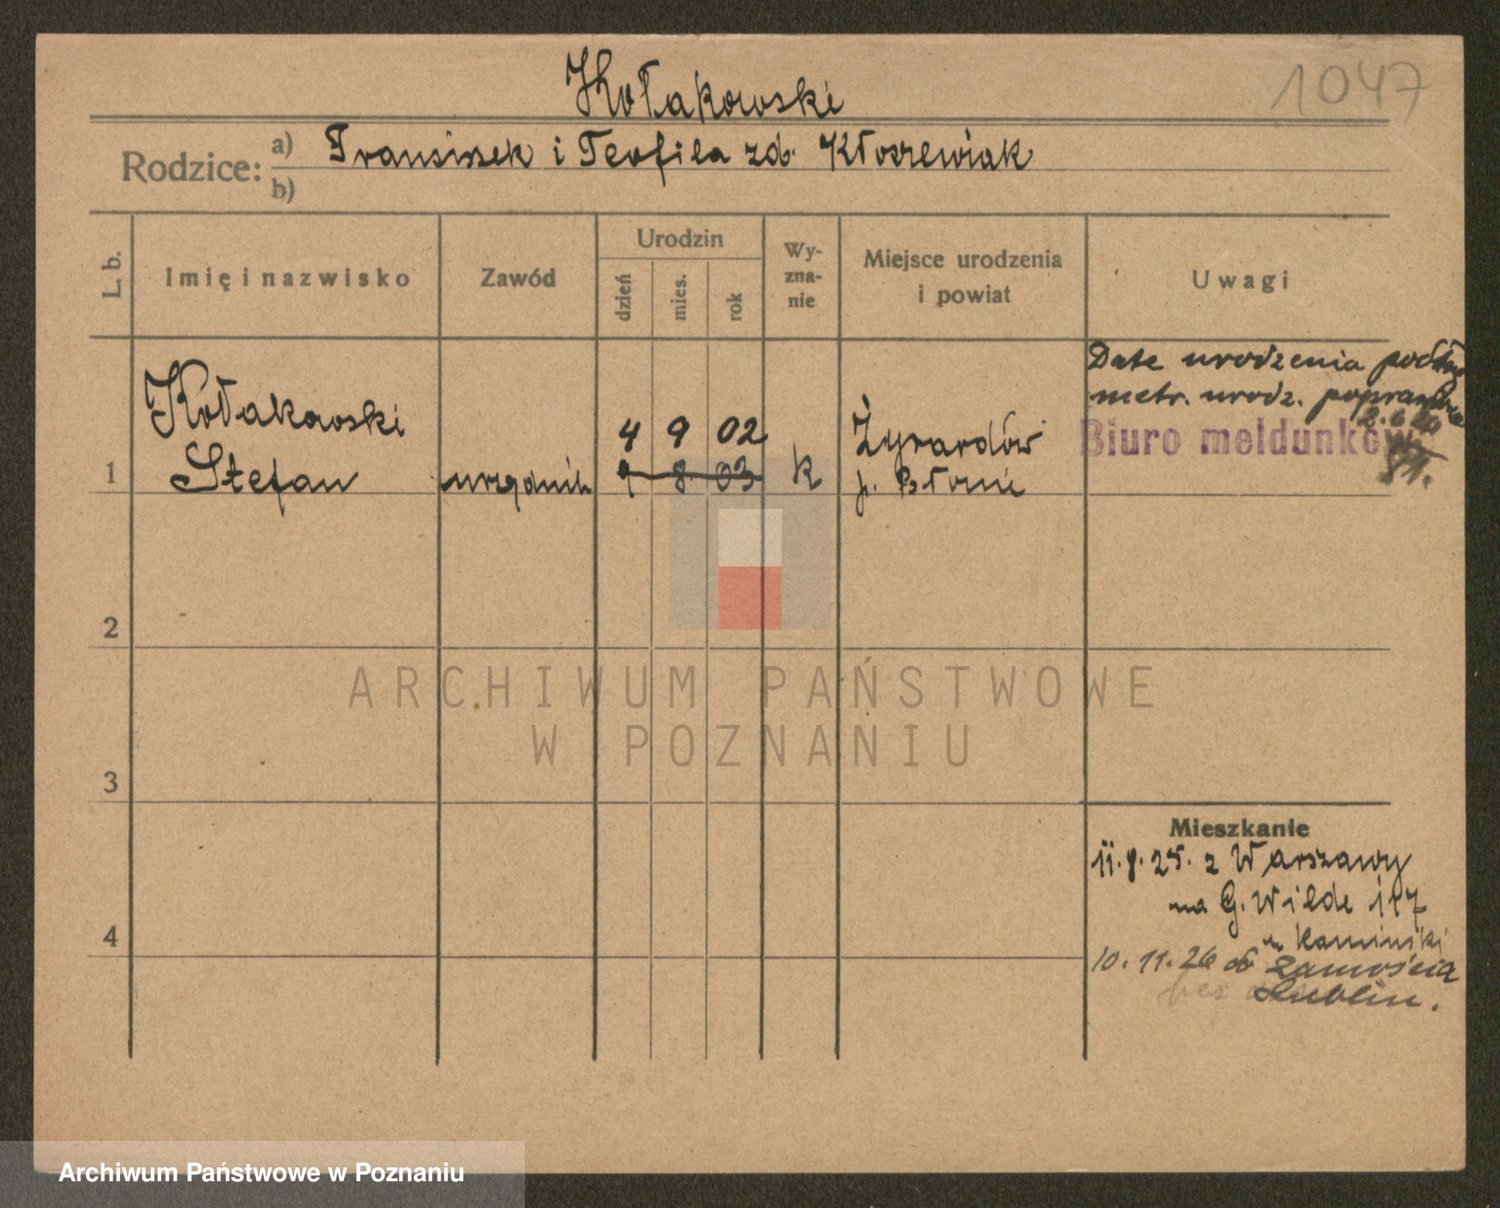 Kołakowski
1047
Rodzice: a) Franciszek i Teofila zd. Kłoszewiak
b)
L. b.
Imię i nazwisko
Zawód
Urodzin
dzień
mies.
rok
Wy-
zna-
nie
Miejsce urodzenia
i powiat
Uwagi
Kołakowski
4 9 02
Żyrardów
1 Stefan urzędnik 9 8 03 k p. Błonie
Date urodzenia podług
metr. urodz.
Biuro meldunków
2
3
4
Mieszkanie
z Warszawy
na G. Wilde 117
Kamiński
10.11.26 do Zamościa
bez Lublin.
ARCHIWUM PAŃSTWOWE
W POZNANIU
Archiwum Państwowe w Poznaniu